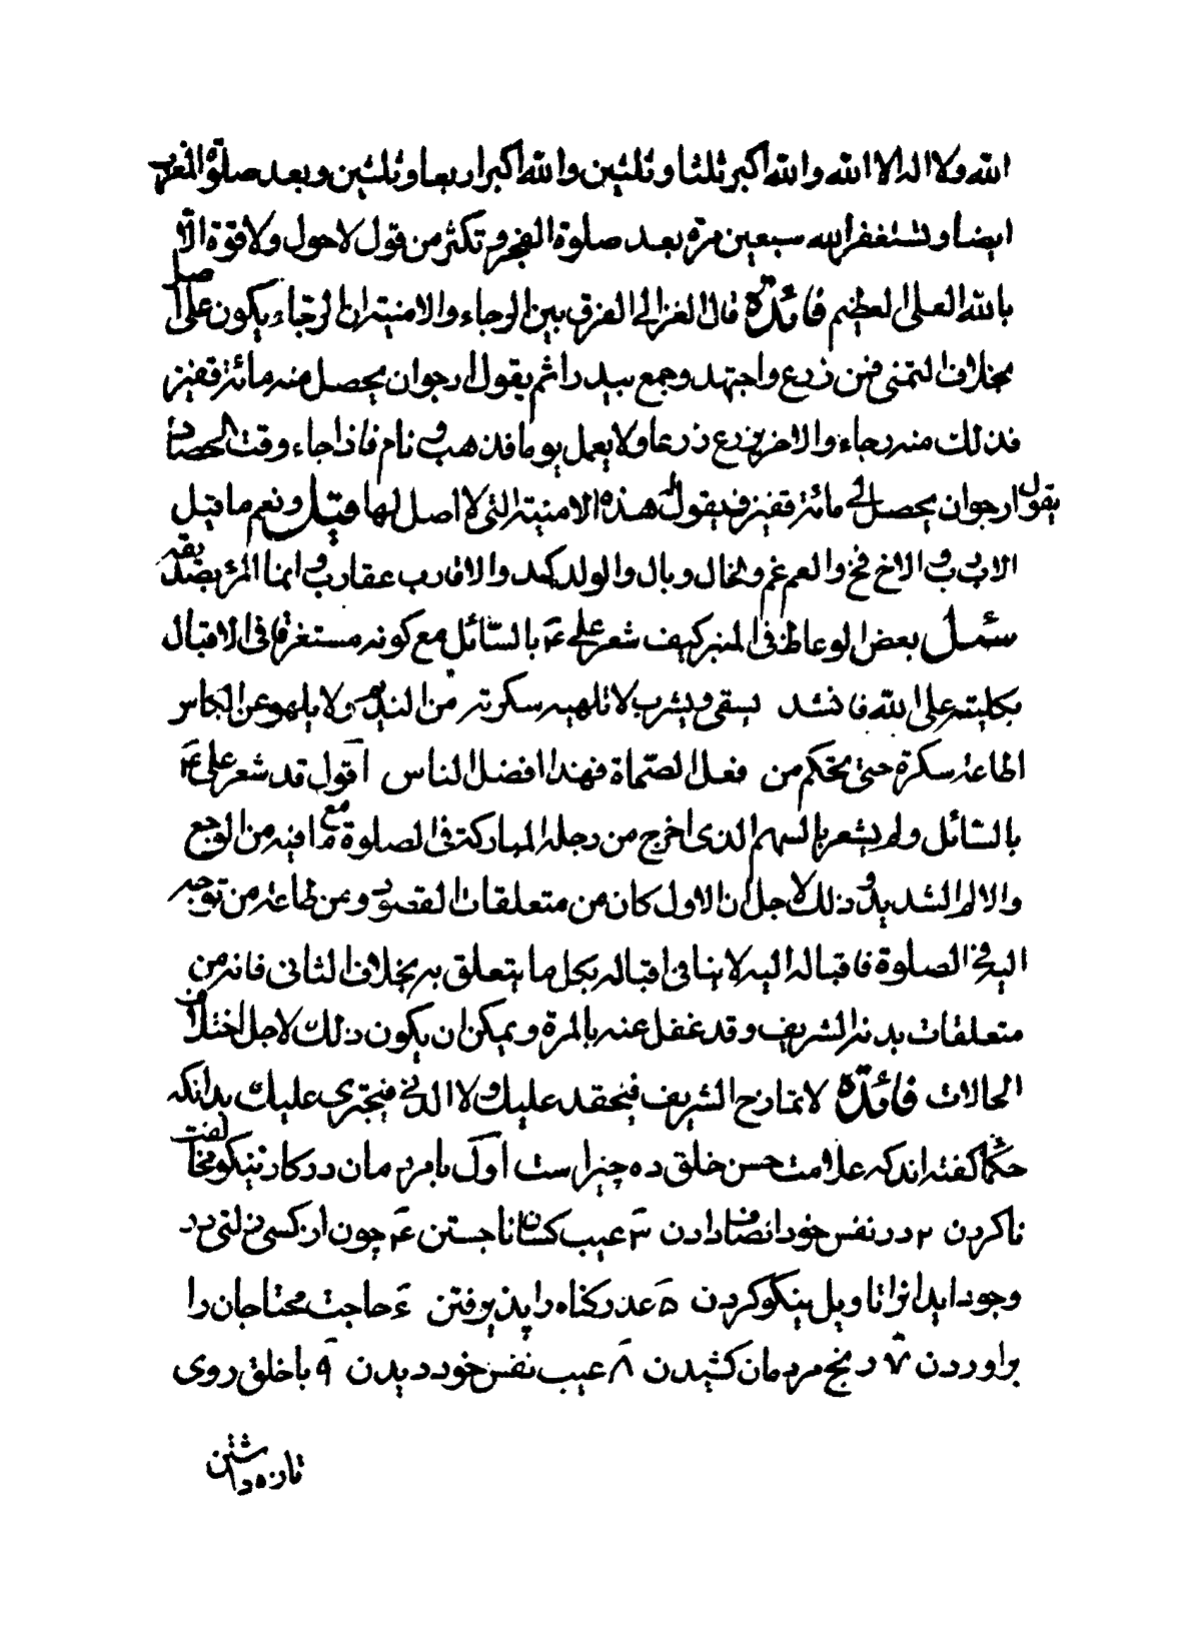 الله ولا اله الا الله والله اكبر ثلثا وثلثين والله اكبر اربعا وثلثين وبعد صلوة المغرب
ايضا وتستغفر الله سبعين مرة بعد صلوة الفجر وتكثر من قول لا حول ولا قوة الا
بالله العلى العظيم فائدة قال الغزالى الفرق بين الرجاء والامنية ان الرجاء يكون على اصل
بخلاف التمنى فمن زرع واجتهد وجمع بيدرا ثم يقول ارجو ان يحصل منه مائة قفيز
فذلك منه رجاء والاخر يزرع زرعا ولا يعمل يوما فذهب ونام فاذا جاء وقت الحصاد
يقول ارجو ان يحصل لى مائة قفيز فيقول له هذه الامنية التى لا اصل لها وقيل ونعم ما قيل
الاب رب والاخ فخ والعم غم والخال وبال والولد كمد والاقارب عقارب وانما المرء بصديقه
سئل بعض الوعاظ فى المنبر كيف شعر على ع بالسائل مع كونه مستغرقا فى الاقبال
بكليته على الله فانشد يسقى ويشرب لا تلهيه سكرته من النديم ولا يلهو عن الكاس
اطاعه سكرة حتى تحكم من فعل الصحاة فهذا افضل الناس اقول قد شعر على ع
بالسائل ولم يشعر بالسهم الذى اخرج من رجله المباركة فى الصلوة مع ما فيه من الوجع
والالم الشديد وذلك لاجل ان الاول كان من متعلقات القصود ومن طاعة من توجه
اليه فى الصلوة فاقباله اليه لا ينافى اقباله بكل ما يتعلق به بخلاف الثانى فانه من
متعلقات بدنه الشريف وقد غفل عنه بالمرة ويمكن ان يكون ذلك لاجل اختلاف
الحالات فائدة لا تمازح الشريف فيحقد عليك ولا الدنى فيجترى عليك بدانكه
حكما گفته اند كه علامت حسن خلق ده چيز است اول با مردمان در كار نيكو مخالفت
نا كردن ۲ در نفس خود انصاف دادن ۳ عيب كسان نا جستن ۴ چون از كسى زلتى در
وجود ايد انرا تاويل نيكو كردن ۵ عذر گناه را پذيرفتن ۶ حاجت محتاجان را
براوردن ۷ رنج مردمان كشيدن ۸ عيب نفس خود ديدن ۹ با خلق روى
تازه داشتن